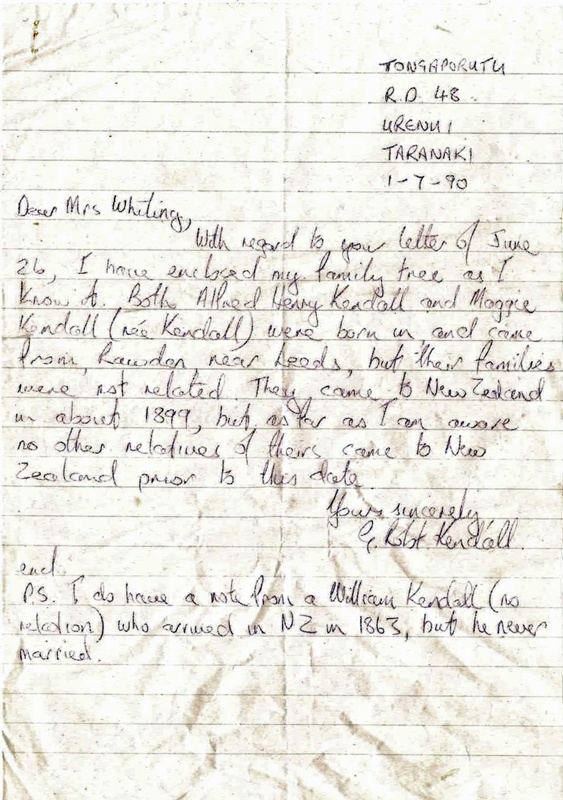 TONGAPORUTU
R.D. 48
URENUI
TARANAKI
1-7-90
Dear Mrs Whiting,
With regard to your letter of June
26, I have enclosed my family tree as I
know it. Both Alfred Henry Kendall and Maggie
Kendall (née Kendall) were born in and came
from, Rawdon near Leeds, but their families
were not related. They came to New Zealand
in about 1899, but as far as I am aware
no other relatives of theirs came to New
Zealand prior to this date.
Yours sincerely
G. Robt Kendall.
encl.
P.S. I do have a note from a William Kendall (no
relation) who arrived in NZ in 1863, but he never
married.